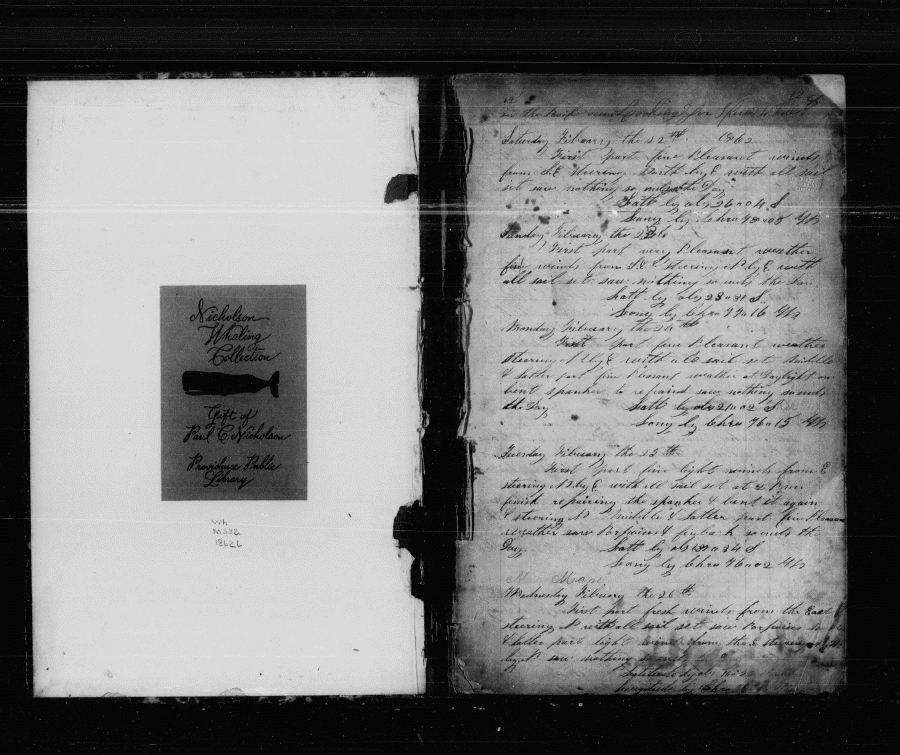 Nicholson
Whaling
Collection
Gift of
Paul C. Nicholson
Providence Public
Library
Wh
M332
1862L
12
in the Pacific
Saturday Febuary the 22nd 1862
First part fine Pleasant winds
from S.E. Steering North by E with all sail
set saw nothing so ends the Day
Latt by obs 26 04 S
Long by Chro
Sunday Febuary the 23
First part very Pleasant weather
fine winds from S.E. steering N by E with
all sail set saw nothing so ends the Day
Latt by obs 23 S
Long by Chro 16
Monday Febuary the 24th
First part fine Pleasant weather
steering N by E with all sail set Middle
& latter part fine Pleasant weather at Daylight un
bent spanker to repaired saw nothing so ends
the Day Latt by obs 21 02 S
Long by Chro 76 15
Tuesday Febuary the 25th
First part fine light winds from E
steering N by E with all sail set at 2
finish repairing the spanker & bent it again
& steering N Middle & latter part fine Pleasant
weather saw Porpoises & finback so ends the
Day Latt by obs 34 S
Long by Chro 76 02
Mapl
Wednesday Febuary the 26th
First part fresh winds from the East
steering N with all sail set saw Porpoises
& latter part light winds from the E steering
by N saw nothing so ends
Latitude by obs
Longitude by Chro